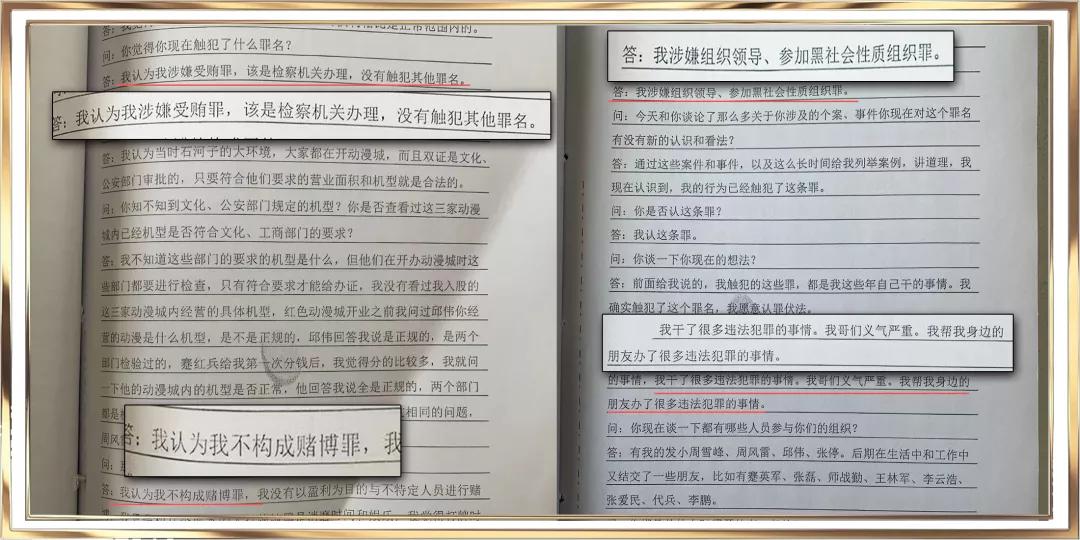 问：你觉得你现在触犯了什么罪名？
答：我认为我涉嫌受贿罪，该是检察机关办理，没有触犯其他罪名。
答：我认为我涉嫌受贿罪，该是检察机关办理，没有触犯其他罪名。
答：我认为当时石河子的大环境，大家都在开动漫城，而且双证是文化、
公安部门审批的，只要符合他们要求的营业面积和机型就是合法的。
问：你知不知到文化、公安部门规定的机型？你是否查看过这三家动漫
城内已经机型是否符合文化、工商部门的要求？
答：我不知道这些部门的要求的机型是什么，但他们在开办动漫城时这
些部门都要进行检查，只有符合要求才能给办证，我没有看过我入股的
这三家动漫城内经营的具体机型，红色动漫城开业之前我问过邱伟你经
营的动漫是什么机型，是不是正规的，邱伟回答我说是正规的，是两个
部门检验过的，蹇红兵给我第一次分钱后，我觉得分的比较多，我就问
一下他的动漫城内的机型是否正常，他回答我说全是正规的，两个部门
都是
相同的问题，
周风雷
答：我认为我不构成赌博罪，我
问：
答：我认为我不构成赌博罪，我没有以盈利为目的与不特定人员进行赌
答：我涉嫌组织领导、参加黑社会性质组织罪。
答：我涉嫌组织领导、参加黑社会性质组织罪。
问：今天和你谈论了那么多关于你涉及的个案、事件你现在对这个罪名
有没有新的认识和看法？
答：通过这些案件和事件，以及这么长时间给我列举案例，讲道理，我
现在认识到，我的行为已经触犯了这条罪。
问：你是否认这条罪？
答：我认这条罪。
问：你谈一下你现在的想法？
答：前面给我说的，我触犯的这些罪，都是我这些年自己干的事情。我
确实触犯了这个罪名，我愿意认罪伏法。
我干了很多违法犯罪的事情。我哥们义气严重。我帮我身边的
朋友办了很多违法犯罪的事情。
的事情，我干了很多违法犯罪的事情。我哥们义气严重。我帮我身边的
朋友办了很多违法犯罪的事情。
问：你现在谈一下都有哪些人员参与你们的组织？
答：有我的发小周雪峰、周风雷、邱伟、张停。后期在生活中和工作中
又结交了一些朋友，比如有蹇英军、张磊、师战勤、王林军、李云浩、
张爱民、代兵、李鹏。